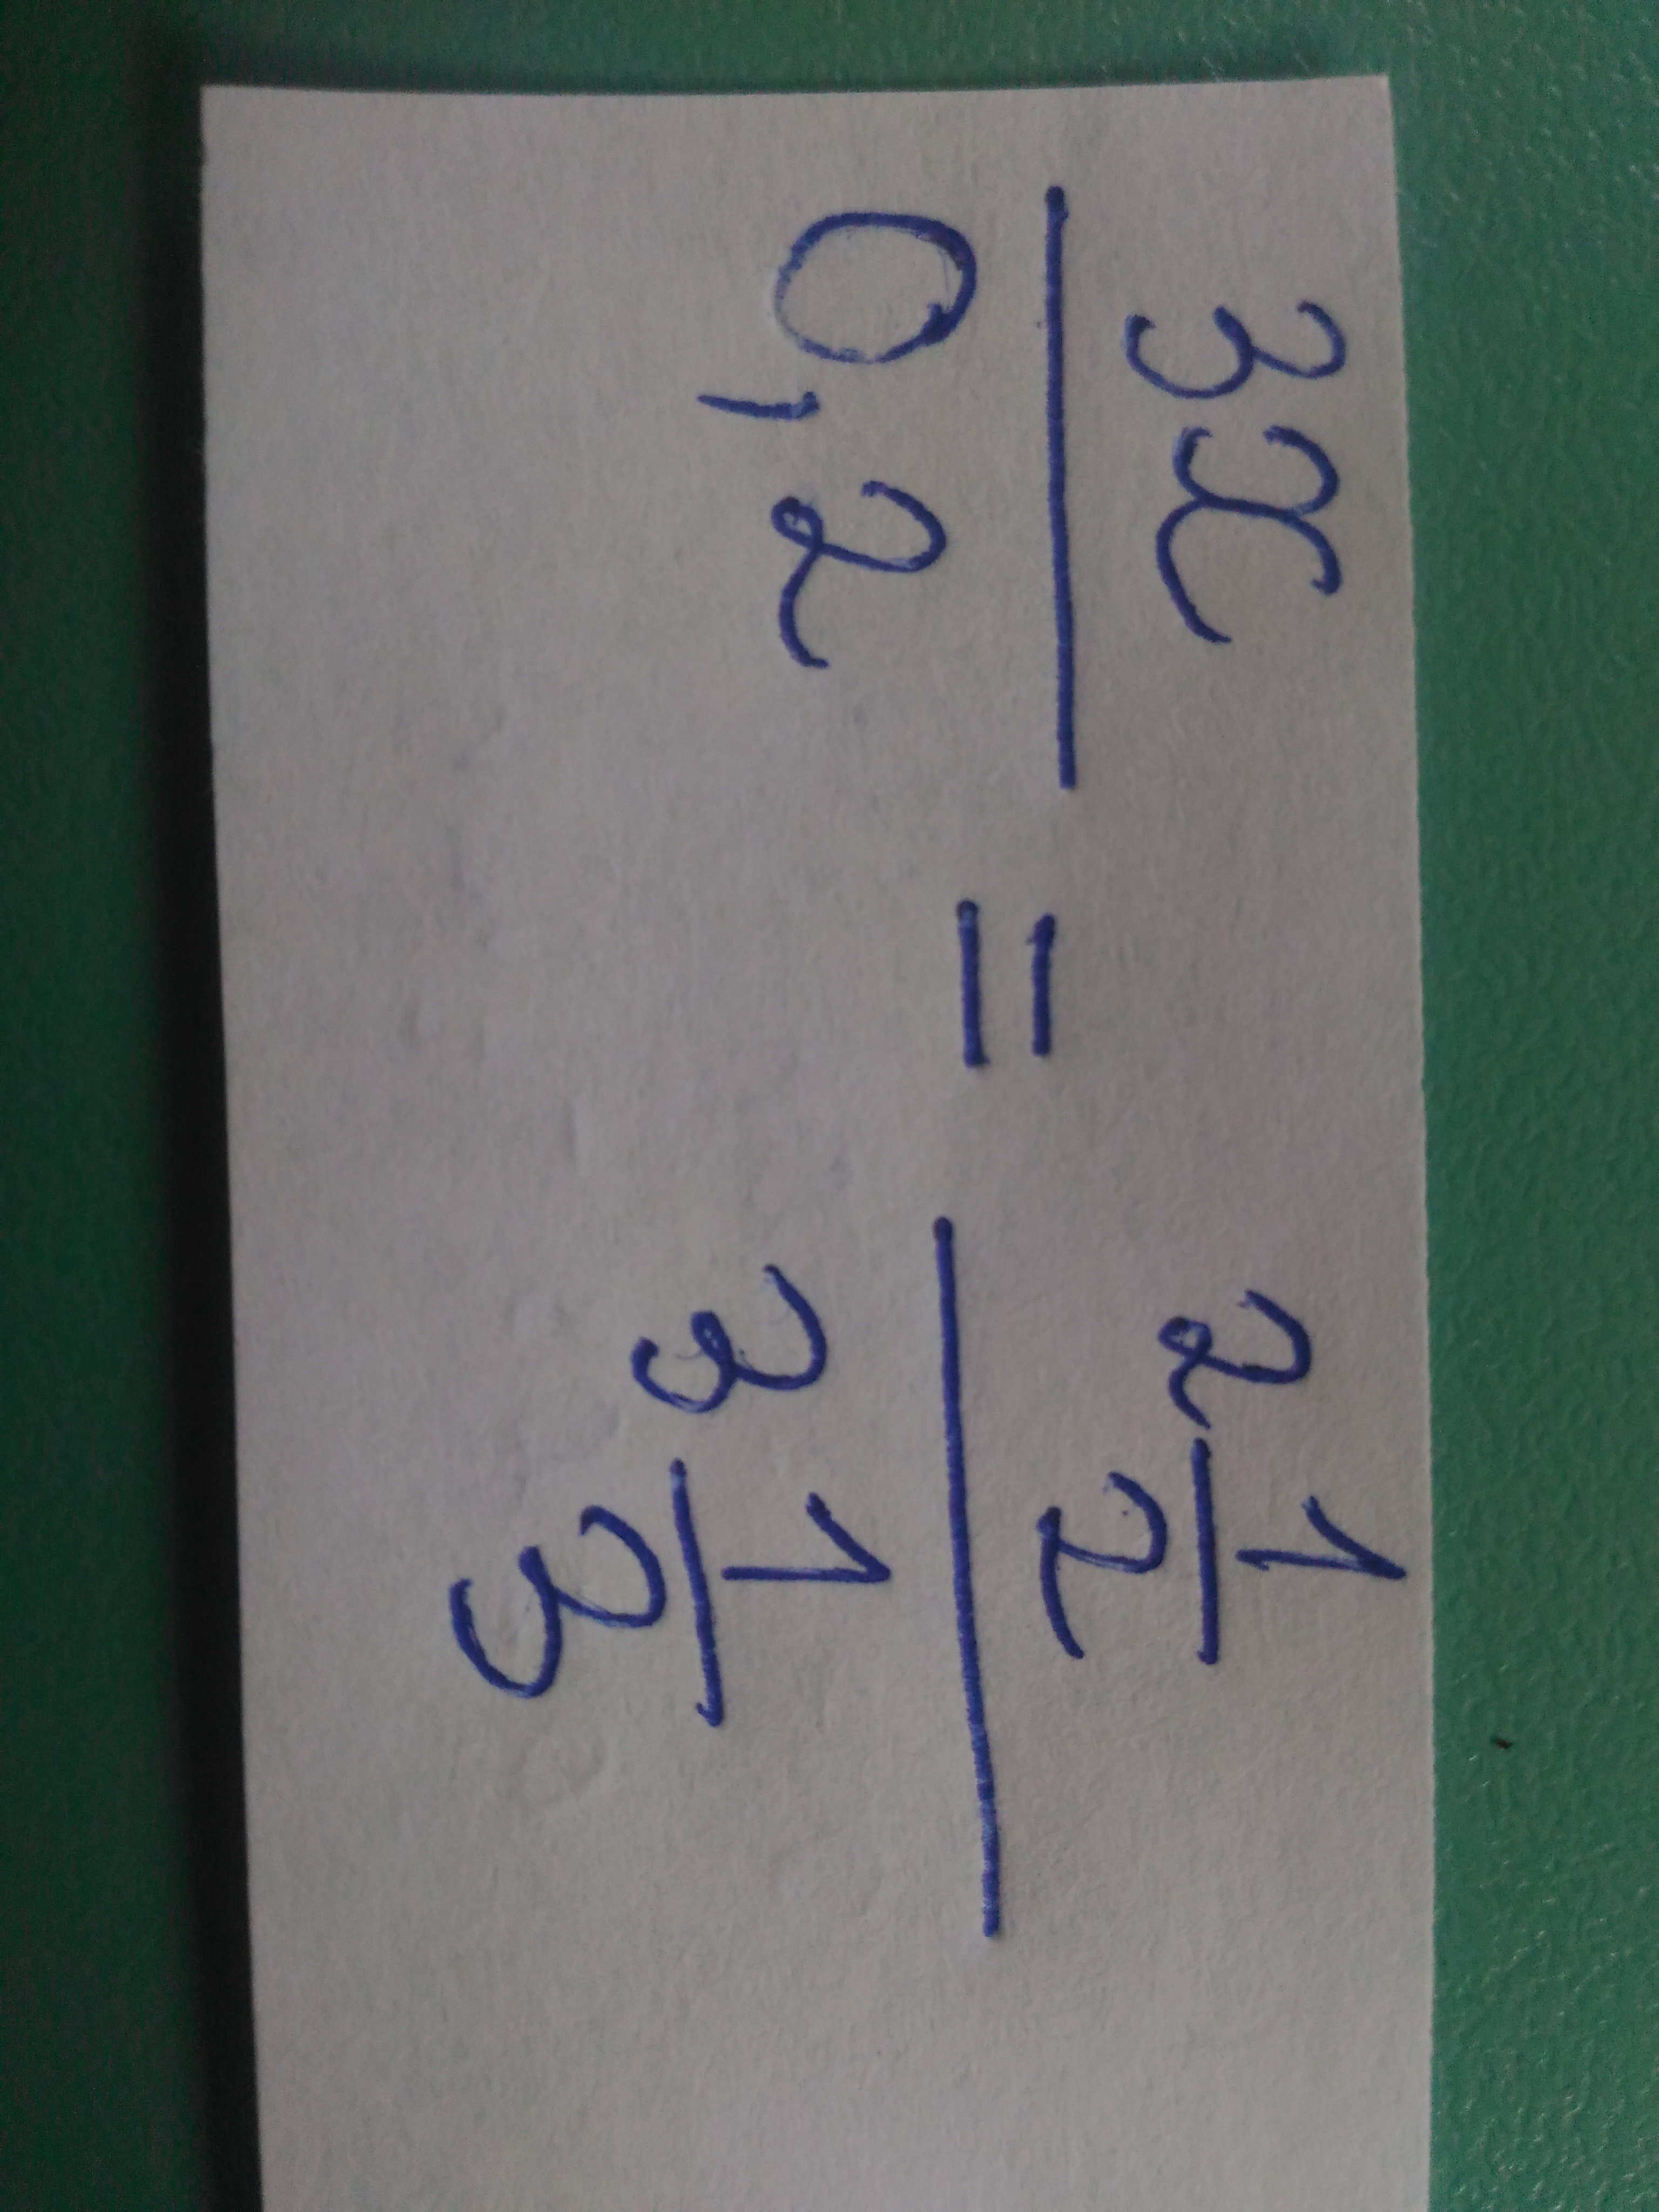 3x/0,2 = 2 1/2 / 3 1/3